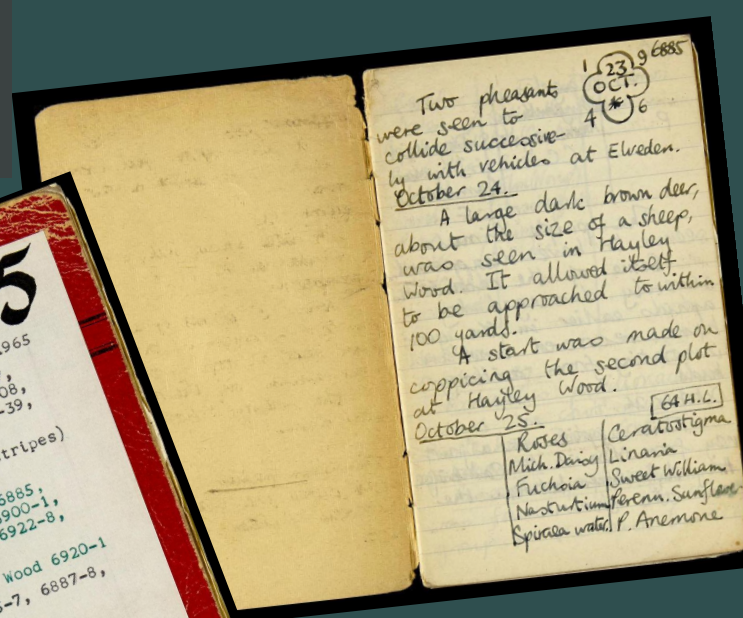 5
1965
08,
-39,
tripes)
6885,
6900-1,
6922-8,
Wood 6920-1
-7, 6887-8,
6885
1 23 9
OCT.
4 6
Two pheasants
were seen to
collide successive-
ly with vehicles at Elveden.
October 24.
A large dark brown deer,
about the size of a sheep,
was seen in Hayley
Wood. It allowed itself
to be approached to within
100 yards.
A start was made on
coppicing the second plot
at Hayley Wood.
October 25.
64 H.L.
Roses
Mich. Daisy
Fuchsia
Nasturtium
Spiraea water.
Ceratostigma
Linaria
Sweet William
Perenn. Sunflower
P. Anemone